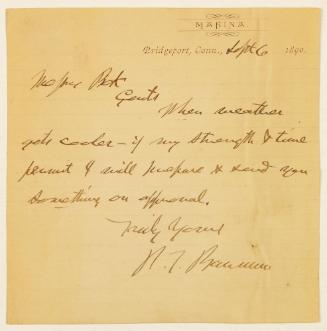 MARINA
Bridgeport, Conn., Sept 6 1890.
Messrs Bok
Gents
When weather
gets cooler – if my strength & time
permit I will prepare & send you
something on approval.
Truly Yours
P. T. Barnum